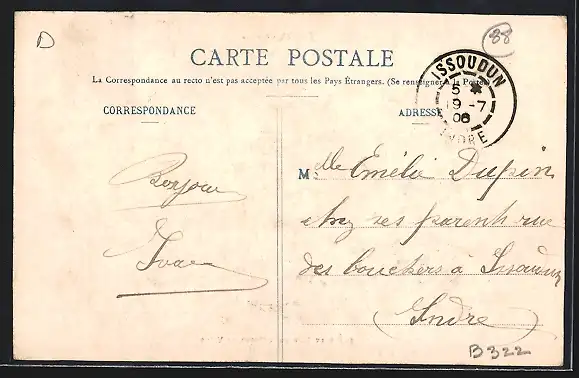 D
88
CARTE POSTALE
La Correspondance au recto n'est pas acceptée par tous les Pays Étrangers. (Se renseigner à la Poste)
ISSOUDUN
5 *
19 -7
08
INDRE
CORRESPONDANCE
ADRESSE
Mlle Emélie Dupin
chez ses parents rue
des bouchers à Issoudun
(Indre)
Bonjour
B322